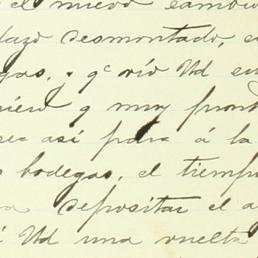 el nuevo cambio
desmontado,
y q^e vió Ud en
y muy pront
sea así para á la
bodegas, el tiemp
depositar el a
Ud una vuelta